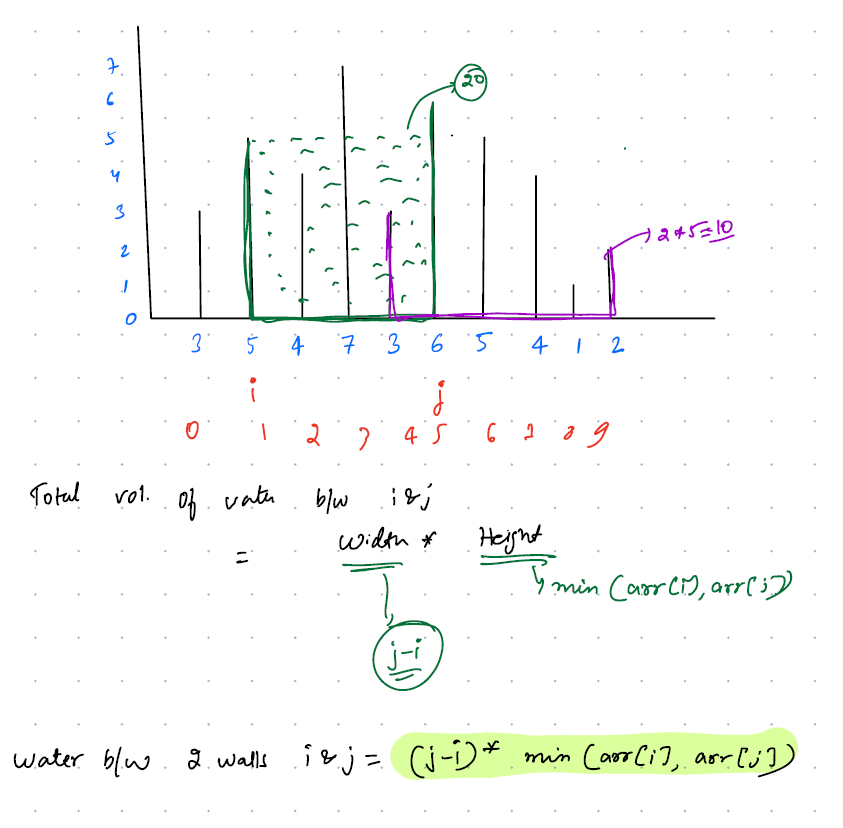 7
6
20
5
4
3
2
2*5=10
1
0
3 5 4 7 3 6 5 4 1 2
i j
0 1 2 3 4 5 6 7 8 9
Total vol. of water b/w i & j
= Width * Height
min (arr[i], arr[j])
j-i
Water b/w 2 walls i & j = (j-i) * min (arr[i], arr[j])